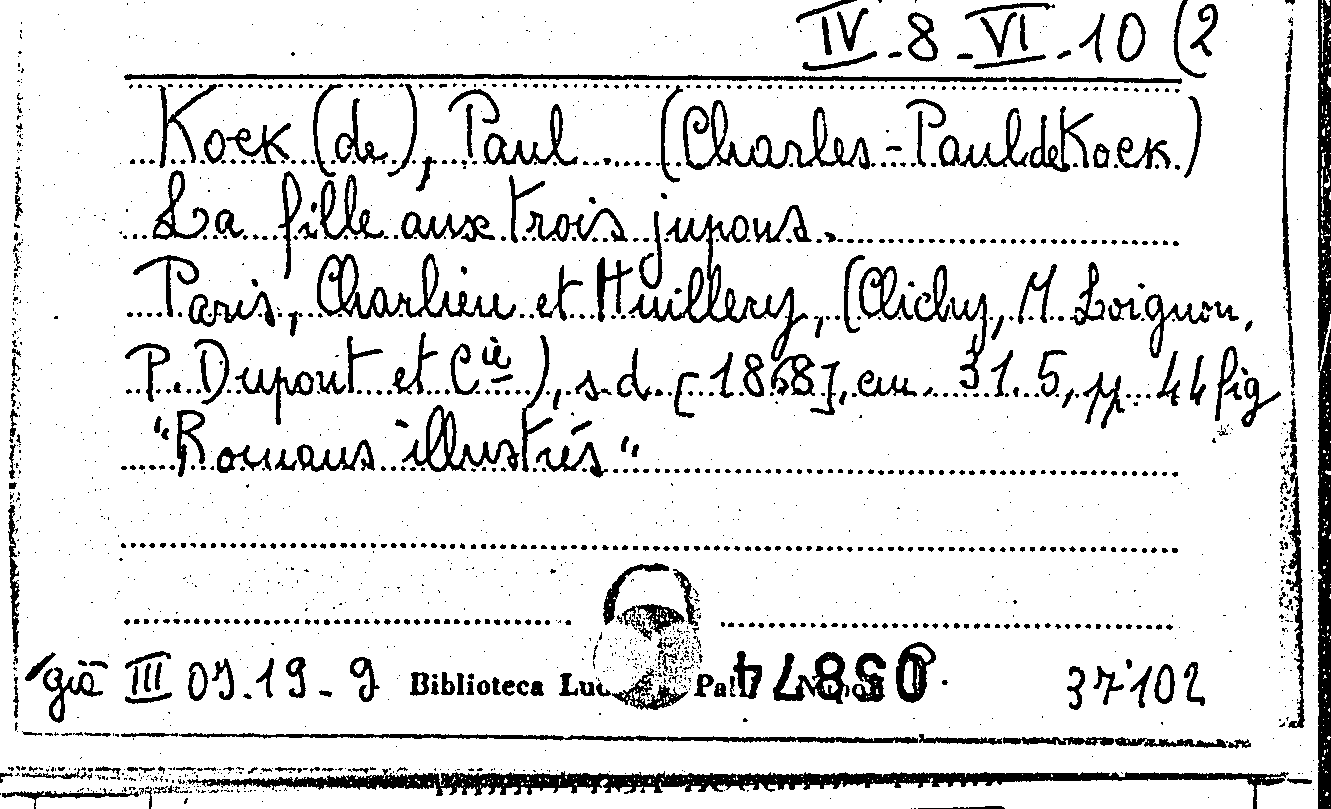 IV-8-VI-10 (2
Kock (de), Paul. (Charles-Paul de Kock)
La fille aux trois jupons.
Paris, Charlieu et Huillery, (Clichy, M. Loignon,
P. Dupont et Cie), s.d. [1868], cm. 31.5, pp. 44 fig
"Romans illustrés"
già III 07.19-9 Biblioteca 05874 37102